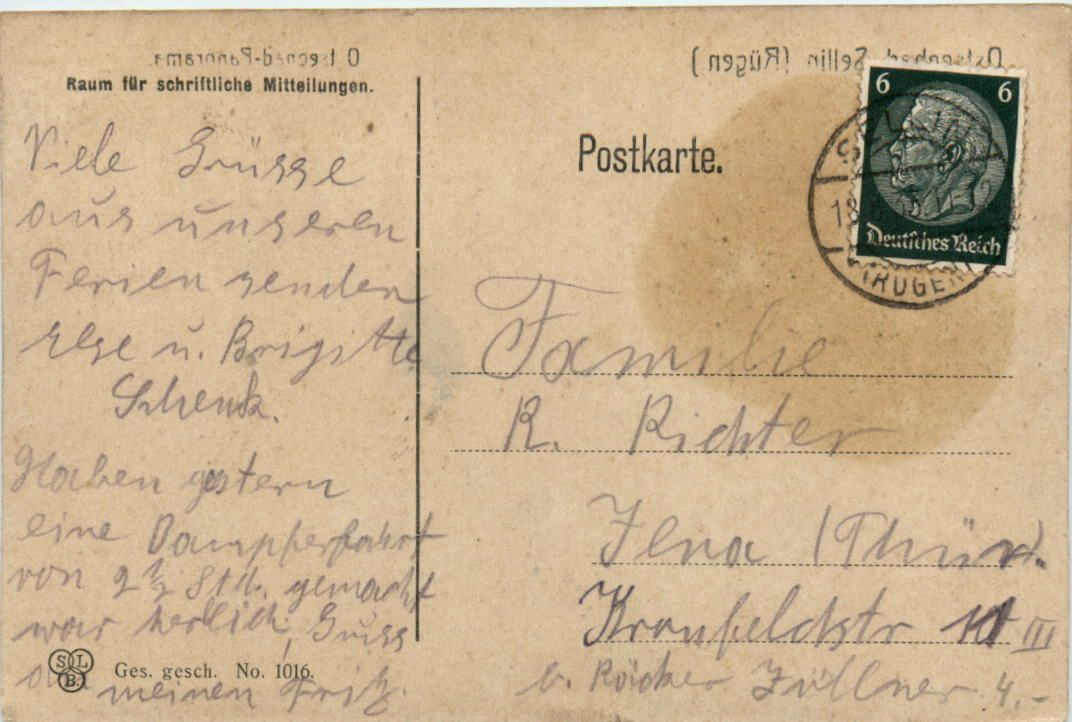 Ostseebad-Panorama.
Raum für schriftliche Mitteilungen.
Viele Grüsse
aus unseren
Ferien senden
Else u. Brigitte
Schenk.
Haben gestern
eine Dampferfahrt
von 2 1/2 Std. gemacht
war herlich, Gruss
an meinen Fritz.
SLB
Ges. gesch. No. 1016.
Ostseebad Sellin (Rügen)
Postkarte.
6 6
Deutsches Reich
SELLIN
18
(RÜGEN)
Familie
R. Richter
Jena (Thür).
Kronfeldstr 11 III
b. Zöllner 4.-